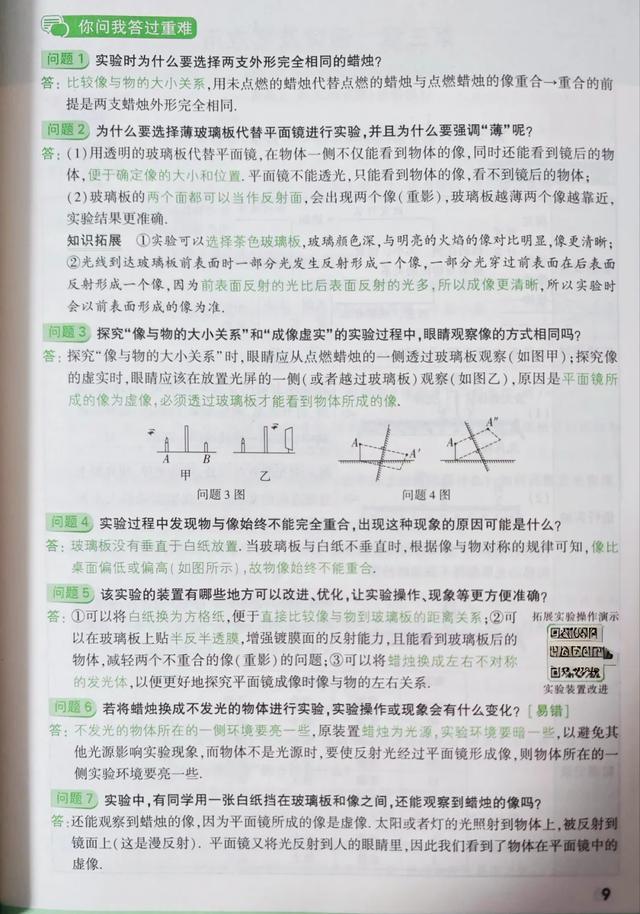 你问我答过重难
问题1 实验时为什么要选择两支外形完全相同的蜡烛?
答:比较像与物的大小关系,用未点燃的蜡烛代替点燃的蜡烛与点燃蜡烛的像重合→重合的前
提是两支蜡烛外形完全相同.
问题2 为什么要选择薄玻璃板代替平面镜进行实验,并且为什么要强调“薄”呢?
答:(1)用透明的玻璃板代替平面镜,在物体一侧不仅能看到物体的像,同时还能看到镜后的物
体,便于确定像的大小和位置.平面镜不能透光,只能看到物体的像,看不到镜后的物体;
(2)玻璃板的两个面都可以当作反射面,会出现两个像(重影),玻璃板越薄两个像越靠近,
实验结果更准确.
知识拓展 ①实验可以选择茶色玻璃板,玻璃颜色深,与明亮的火焰的像对比明显,像更清晰;
②光线到达玻璃板前表面时一部分光发生反射形成一个像,一部分光穿过前表面在后表面
反射形成一个像,因为前表面反射的光比后表面反射的光多,所以成像更清晰,所以实验时
会以前表面形成的像为准.
问题3 探究“像与物的大小关系”和“成像虚实”的实验过程中,眼睛观察像的方式相同吗?
答:探究“像与物的大小关系”时,眼睛应从点燃蜡烛的一侧透过玻璃板观察(如图甲);探究像
的虚实时,眼睛应该在放置光屏的一侧(或者越过玻璃板)观察(如图乙),原因是平面镜所
成的像为虚像,必须透过玻璃板才能看到物体所成的像.
A B
A A′
A A″
甲 乙
问题3图 问题4图
问题4 实验过程中发现物与像始终不能完全重合,出现这种现象的原因可能是什么?
答:玻璃板没有垂直于白纸放置.当玻璃板与白纸不垂直时,根据像与物对称的规律可知,像比
桌面偏低或偏高(如图所示),故物像始终不能重合.
问题5 该实验的装置有哪些地方可以改进、优化,让实验操作、现象等更方便准确?
答:①可以将白纸换为方格纸,便于直接比较像与物到玻璃板的距离关系;②可
以在玻璃板上贴半反半透膜,增强镀膜面的反射能力,且能看到玻璃板后的
物体,减轻两个不重合的像(重影)的问题;③可以将蜡烛换成左右不对称
的发光体,以便更好地探究平面镜成像时像与物的左右关系.
拓展实验操作演示
实验装置改进
问题6 若将蜡烛换成不发光的物体进行实验,实验操作或现象会有什么变化?[易错]
答:不发光的物体所在的一侧环境要亮一些,原装置蜡烛为光源,实验环境要暗一些,以避免其
他光源影响实验现象,而物体不是光源时,要使反射光经过平面镜形成像,则物体所在的一
侧实验环境要亮一些.
问题7 实验中,有同学用一张白纸挡在玻璃板和像之间,还能观察到蜡烛的像吗?
答:还能观察到蜡烛的像,因为平面镜所成的像是虚像.太阳或者灯的光照射到物体上,被反射到
镜面上(这是漫反射).平面镜又将光反射到人的眼睛里,因此我们看到了物体在平面镜中的
虚像.
9